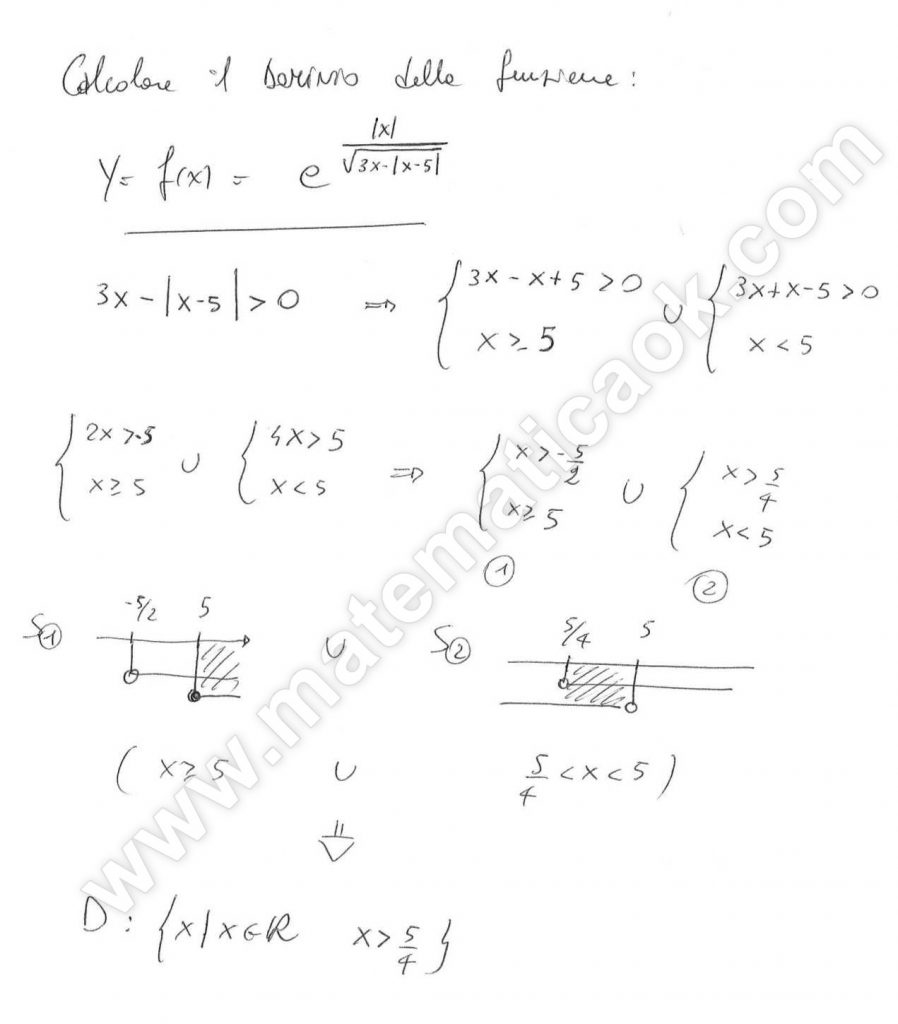 Calcolare il Dominio della funzione:
Y = f(x) = e^(|x| / √(3x-|x-5|))
3x - |x-5| > 0 ⇒ { 3x - x + 5 > 0 ∪ { 3x + x - 5 > 0
x ≥ 5 x < 5
{ 2x > -5 ∪ { 4x > 5 ⇒ { x > -5/2 ∪ { x > 5/4
x ≥ 5 x < 5 x ≥ 5 x < 5
① ②
-5/2 5 5/4 5
S① ∪ S②
( x ≥ 5 ∪ 5/4 < x < 5 )
⇓
D : { x | x ∈ R x > 5/4 }
www.matematicaok.com